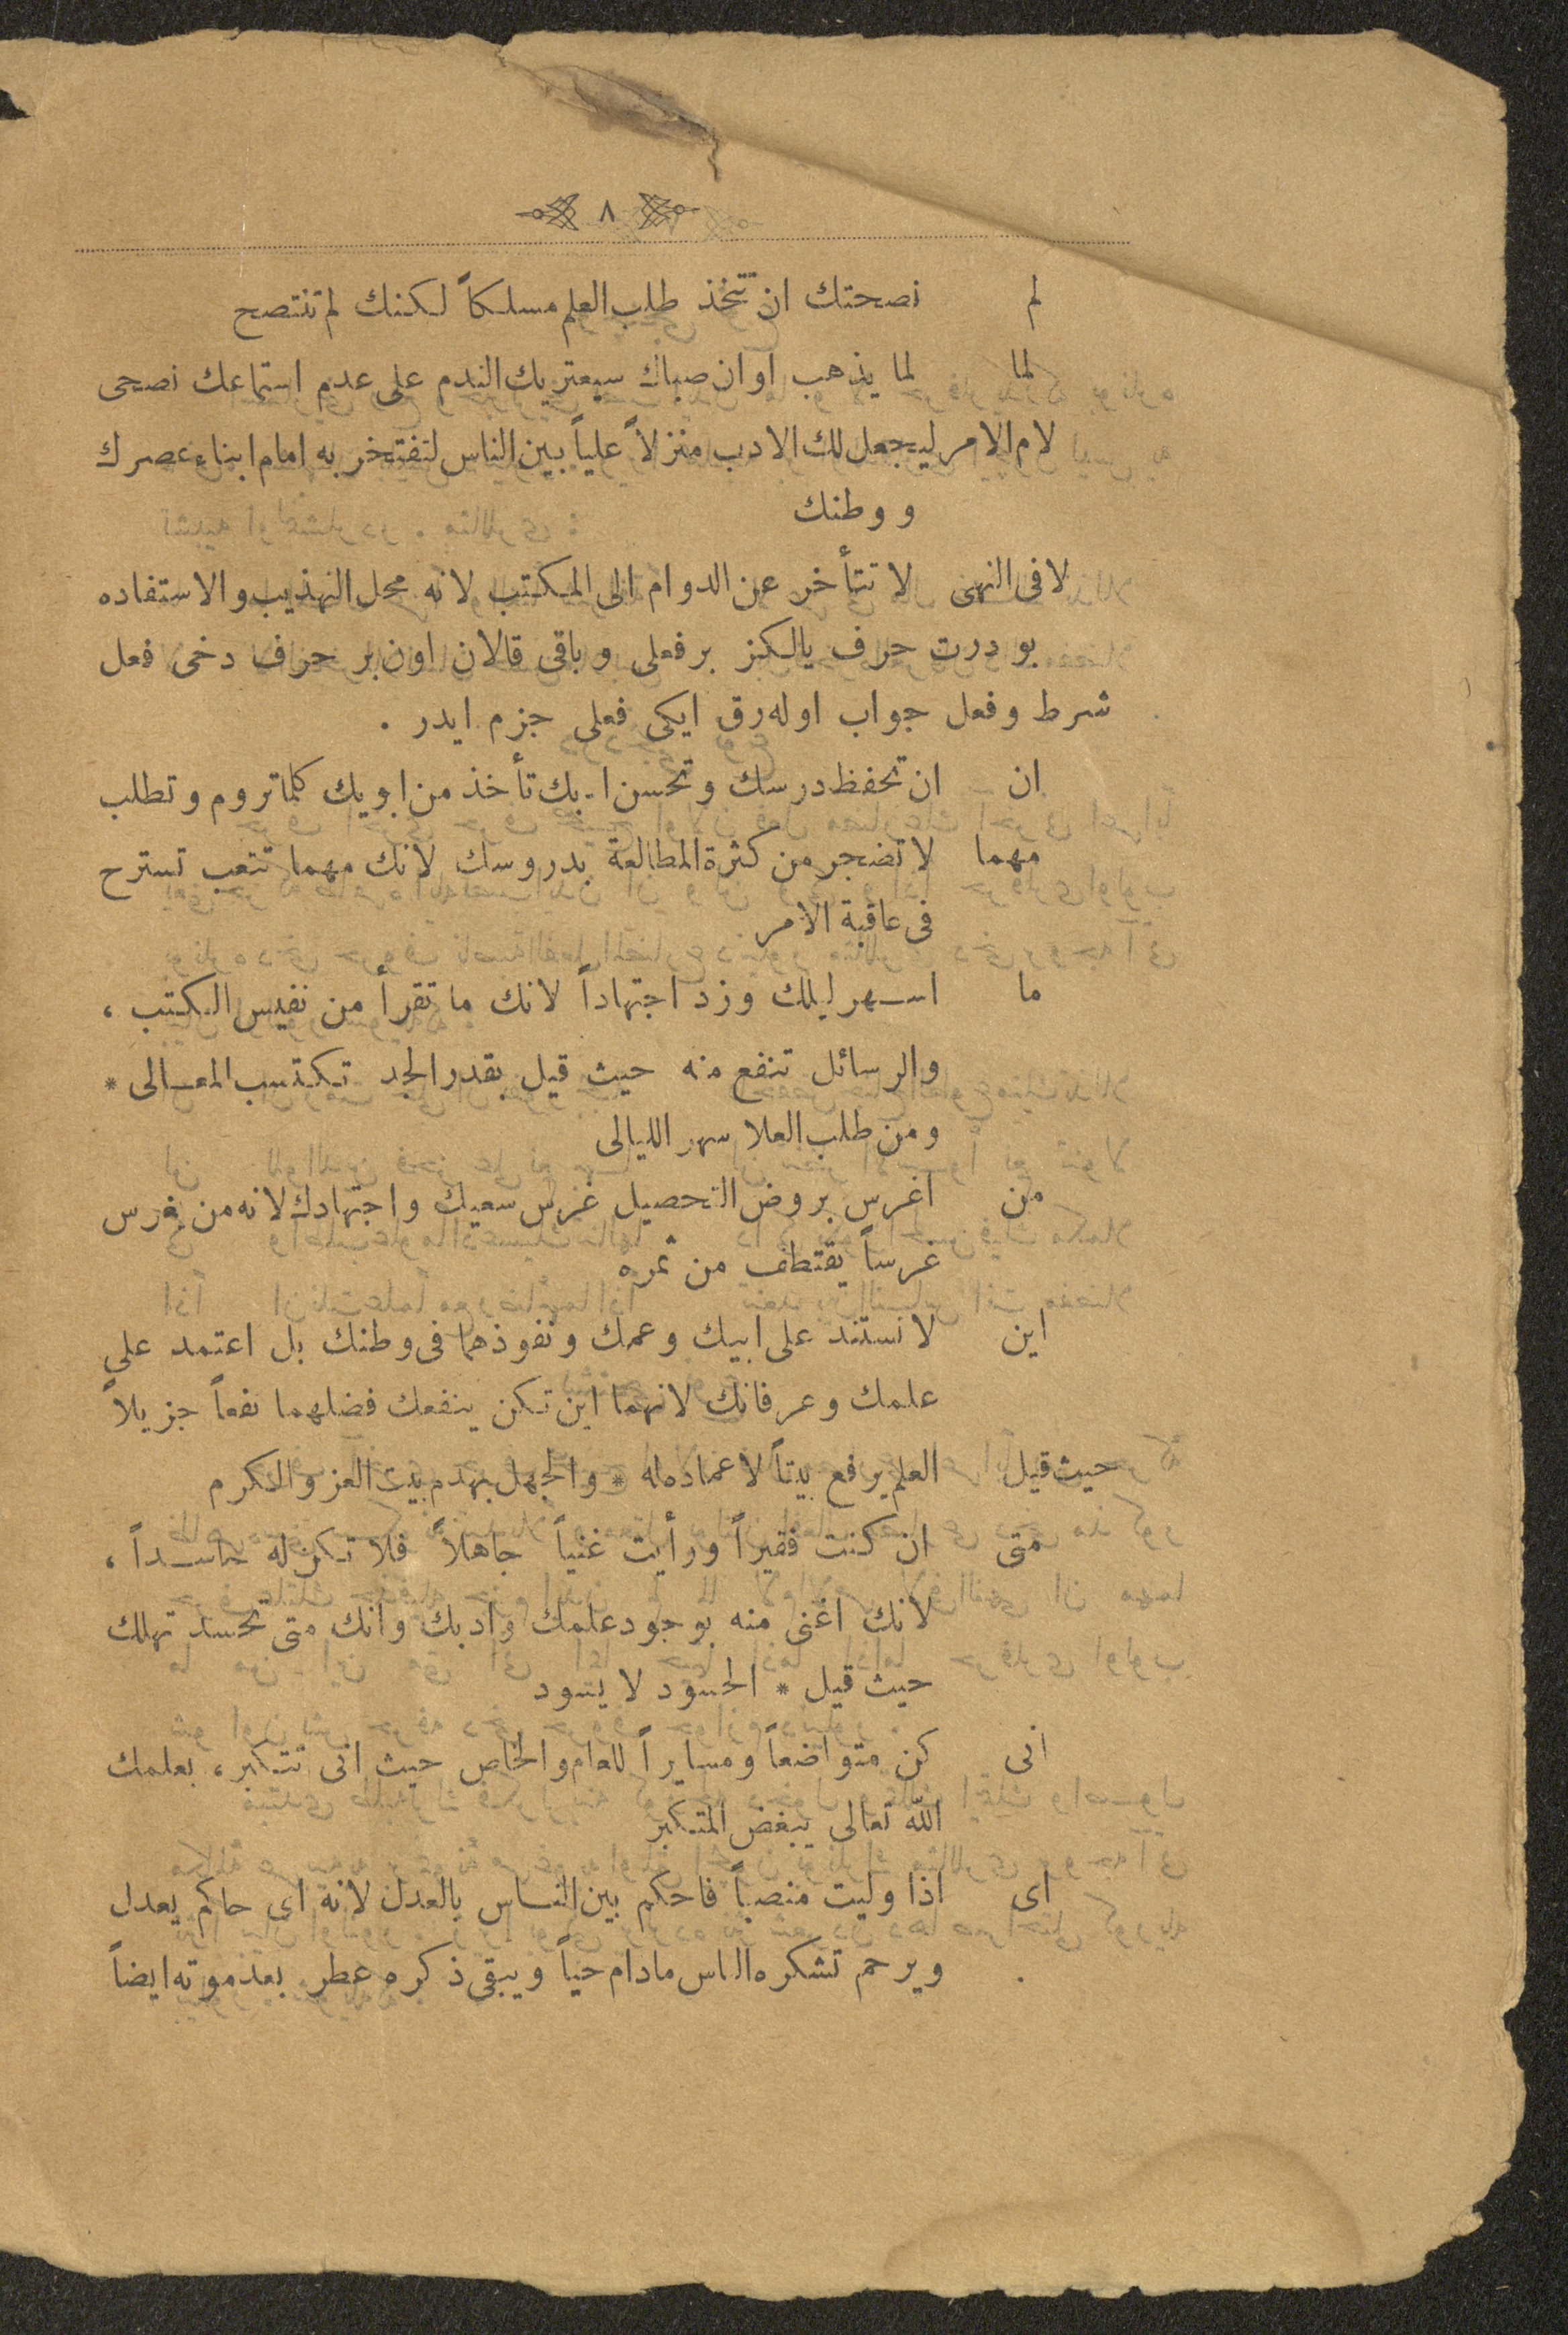 ٨
لم نصحتك ان تتخذ طلب العلم مسلكاً لكنك لم تنتصح
لما لما يذهب اوان صباك سيعتريك الندم على عدم استماعك نصحى
لام الامر ليجعل لك الادب منزلاً علياً بين الناس لتفتخر به امام ابناء عصرك
ووطنك
لافى النهى لا تتأخر عن الدوام الى المكتب لانه محل التهذيب والاستفاده
بو درت حرف يالكز بر فعلى وباقى قالان اون بر حرف دخى فعل
شرط وفعل جواب اوله رق ايكى فعلى جزم ايدر .
ان ان تحفظ درسك وتحسن ادبك تأخذ من ابويك كلما تروم وتطلب
مهما لا تضجر من كثرة المطالعة بدروسك لانك مهما تتعب تسترح
فى عاقبة الامر
ما اسهر ليلك وزد اجتهاداً لانك ما تقرأ من نفيس الكتب ،
والرسائل تنفع منه حيث قيل بقدر الجد تكتسب المعالى *
ومن طلب العلا سهر الليالى
من اغرس بروض التحصيل غرس سعيك واجتهادك لانه من غرس
غرساً يقتطف من ثمره
اين لا تستند على ابيك وعمك ونفوذهما فى وطنك بل اعتمد على
علمك وعرفانك لانهما اين تكن ينفعك فضلهما نفعاً جزيلاً
حيث قيل العلم يرفع بيتاً لا عماد له * والجهل يهدم بيت العز والكرم
متى ان كنت فقيراً ورأيت غنياً جاهلاً فلا تكن له حاسداً ،
لانك اغنى منه بوجود علمك وادبك وانك متى تحسد تهلك
حيث قيل * الحسود لا يسود
انى كن متواضعاً ومسايراً للعام والخاص حيث انى تتكبر ، بعلمك
الله تعالى يبغض المتكبر
اى اذا وليت منصباً فاحكم بين الناس بالعدل لانه اى حاكم يعدل
ويرحم تشكره الناس مادام حياً ويبقى ذكره عطر بعد موته ايضاً